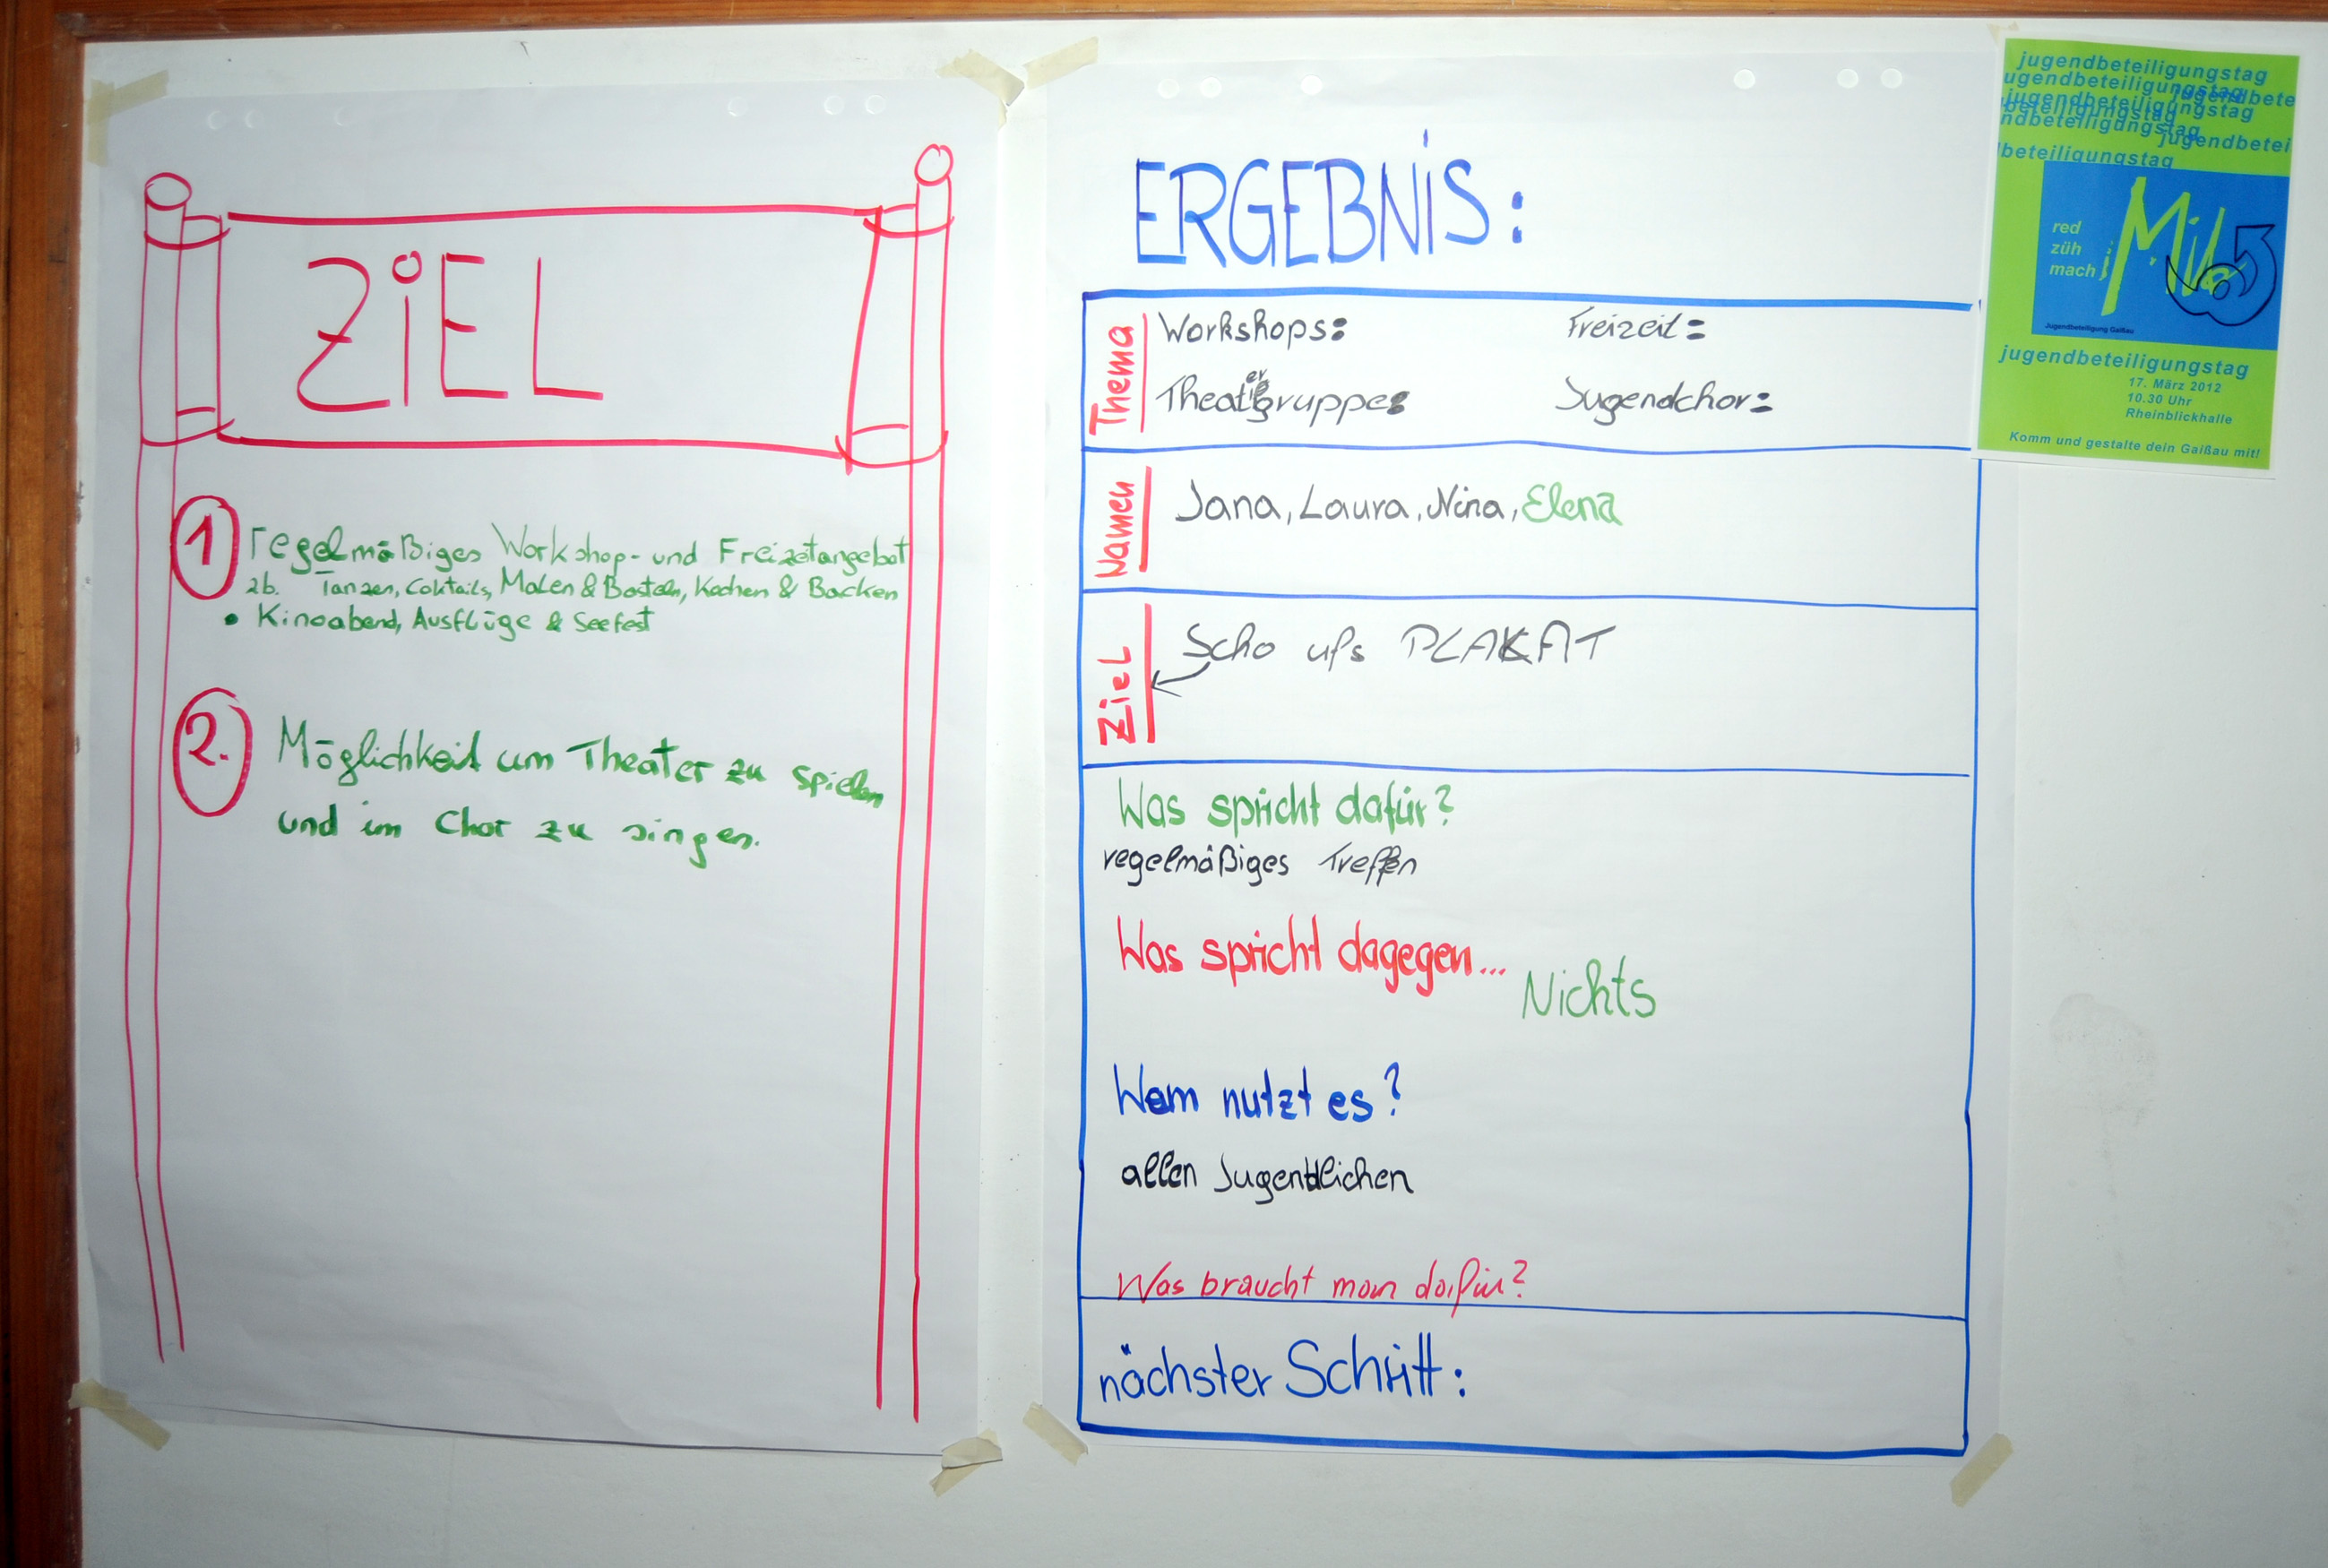 ZiEL
1 regelmäßiges Workshop- und Freizeitangebot
zb. Tanzen, Coktails, Malen & Basteln, Kochen & Backen
• Kinoabend, Ausflüge & Seefest
2. Möglichkeit um Theater zu spielen
und im Chor zu singen.
ERGEBNiS:
Thema
Workshops: Freizeit:
Theatergruppe: Jugendchor:
Namen
Jana, Laura, Nina, Elena
Ziel
Scho ufs PLAKAT
Was spricht dafür?
regelmäßiges Treffen
Was spricht dagegen...
Nichts
Wem nutzt es?
allen Jugendlichen
Was braucht man dafür?
nächster Schritt:
jugendbeteiligungstag
ugendbeteiligungstag
jugendbete
jugendbeteiligungstag
beteiligungstag
ndbeteiligungstag
jugendbetei
beteiligungstag
red
züh
mach
Jugendbeteiligung Gaißau
jugendbeteiligungstag
17. März 2012
10.30 Uhr
Rheinblickhalle
Komm und gestalte dein Gaißau mit!